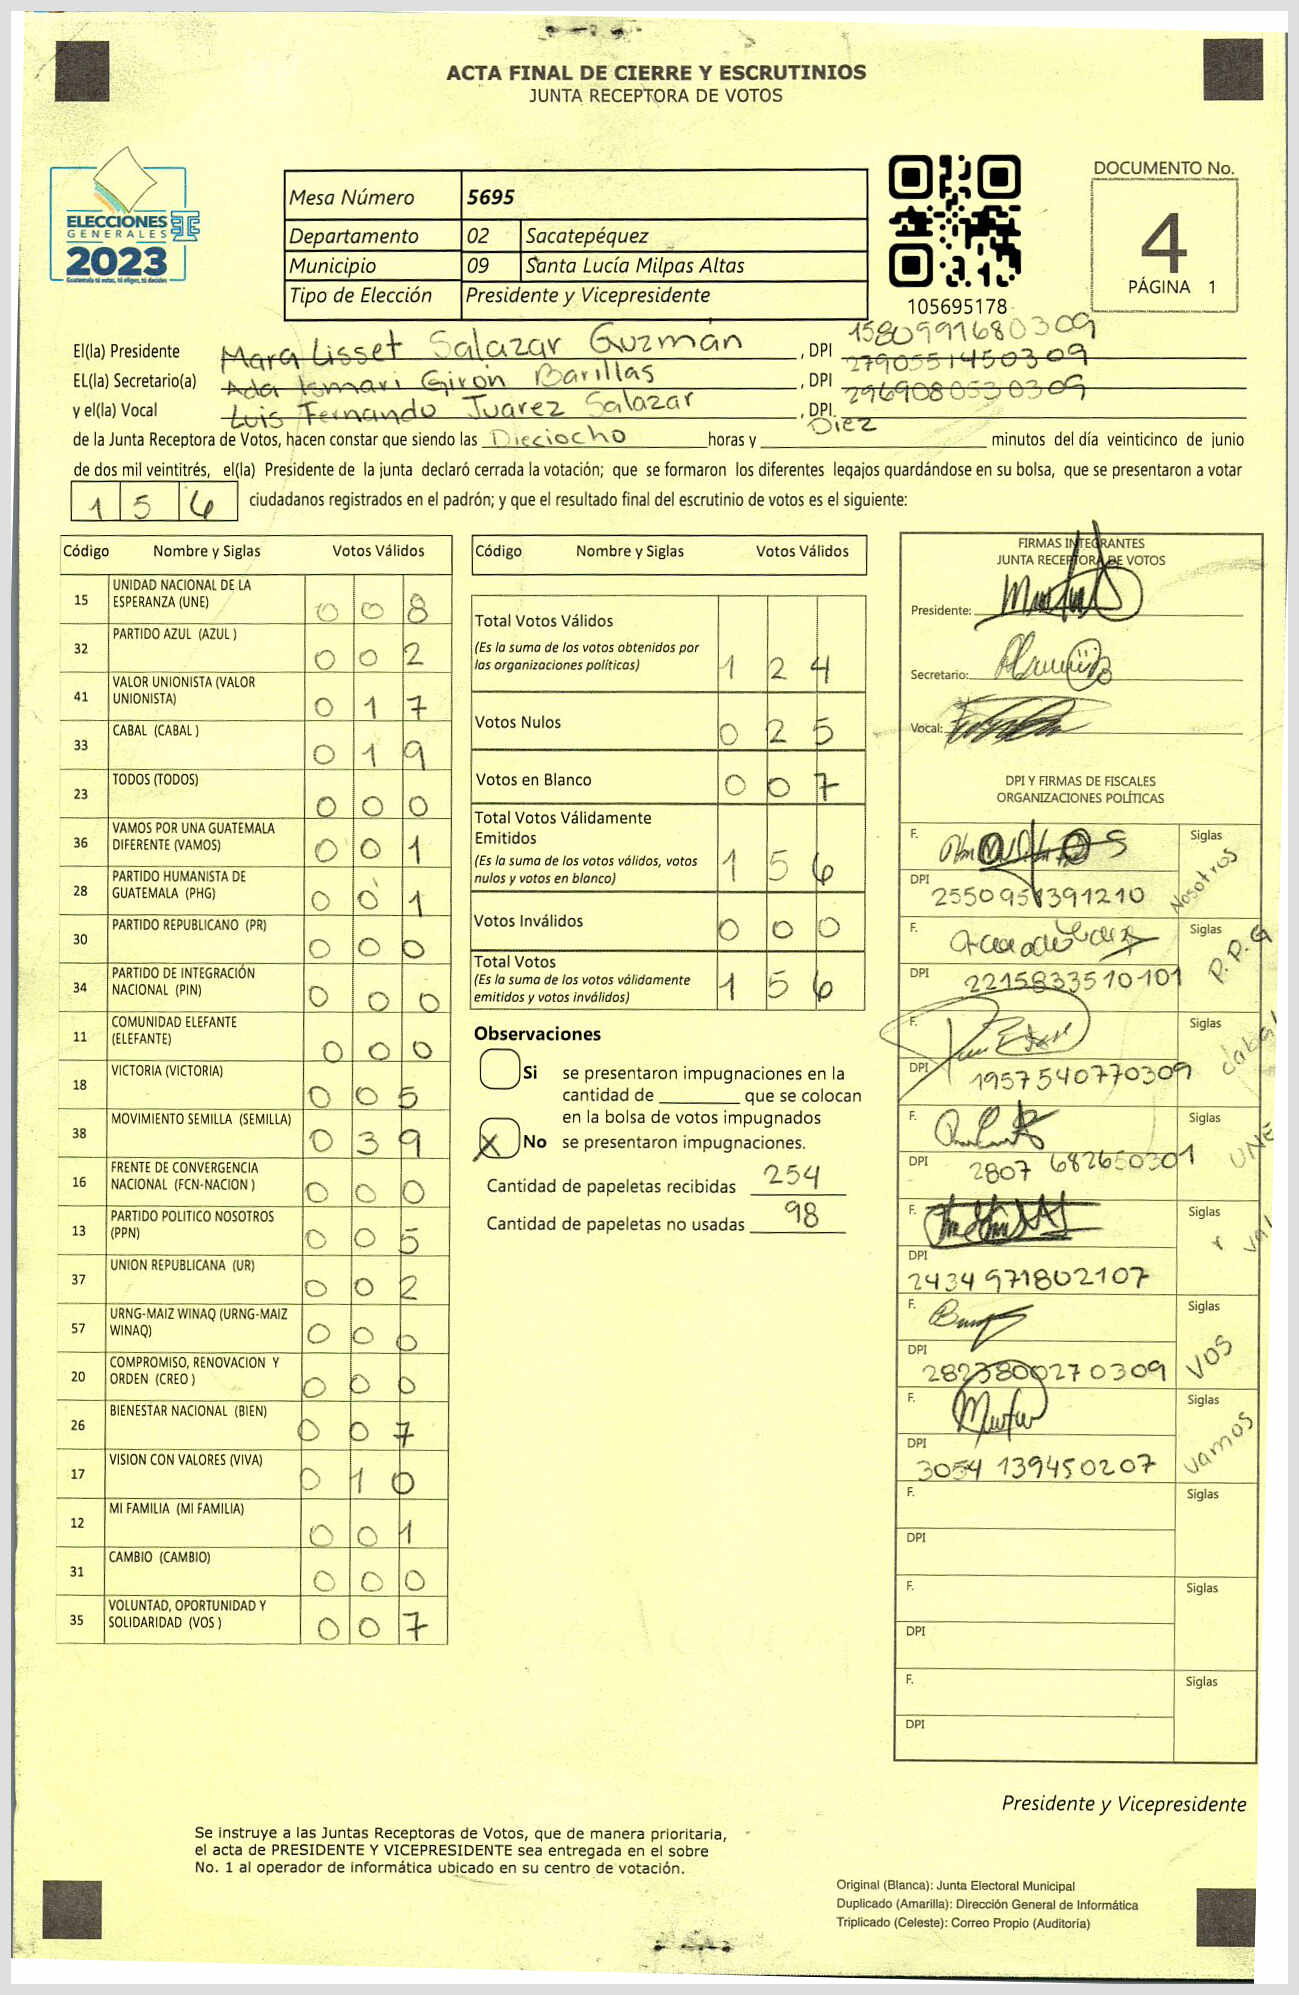 ACTA FINAL DE CIERRE Y ESCRUTINIOS
JUNTA RECEPTORA DE VOTOS
ELECCIONES
GENERALES
2023
Guatemala tú votas, tú eliges, tú decides
Mesa Número 5695
Departamento 02 Sacatepéquez
Municipio 09 Santa Lucía Milpas Altas
Tipo de Elección Presidente y Vicepresidente
105695178
DOCUMENTO No.
4
PÁGINA 1
El(la) Presidente Mara Lisset Salazar Guzmán , DPI 1580991680309
EL(la) Secretario(a) Ada Ismari Girón Barillas , DPI 2790551450309
y el(la) Vocal Luis Fernando Juarez Salazar , DPI. 2969080530309
de la Junta Receptora de Votos, hacen constar que siendo las Dieciocho horas y Diez minutos del día veinticinco de junio
de dos mil veintitrés, el(la) Presidente de la junta declaró cerrada la votación; que se formaron los diferentes legajos guardándose en su bolsa, que se presentaron a votar
1 5 6 ciudadanos registrados en el padrón; y que el resultado final del escrutinio de votos es el siguiente:
Código Nombre y Siglas Votos Válidos
15 UNIDAD NACIONAL DE LA
ESPERANZA (UNE) 0 0 8
32 PARTIDO AZUL (AZUL ) 0 0 2
41 VALOR UNIONISTA (VALOR
UNIONISTA) 0 1 7
33 CABAL (CABAL ) 0 1 9
23 TODOS (TODOS) 0 0 0
36 VAMOS POR UNA GUATEMALA
DIFERENTE (VAMOS) 0 0 1
28 PARTIDO HUMANISTA DE
GUATEMALA (PHG) 0 0 1
30 PARTIDO REPUBLICANO (PR) 0 0 0
34 PARTIDO DE INTEGRACIÓN
NACIONAL (PIN) 0 0 0
11 COMUNIDAD ELEFANTE
(ELEFANTE) 0 0 0
18 VICTORIA (VICTORIA) 0 0 5
38 MOVIMIENTO SEMILLA (SEMILLA) 0 3 9
16 FRENTE DE CONVERGENCIA
NACIONAL (FCN-NACION ) 0 0 0
13 PARTIDO POLITICO NOSOTROS
(PPN) 0 0 5
37 UNION REPUBLICANA (UR) 0 0 2
57 URNG-MAIZ WINAQ (URNG-MAIZ
WINAQ) 0 0 0
20 COMPROMISO, RENOVACION Y
ORDEN (CREO ) 0 0 0
26 BIENESTAR NACIONAL (BIEN) 0 0 7
17 VISION CON VALORES (VIVA) 0 1 0
12 MI FAMILIA (MI FAMILIA) 0 0 1
31 CAMBIO (CAMBIO) 0 0 0
35 VOLUNTAD, OPORTUNIDAD Y
SOLIDARIDAD (VOS ) 0 0 7
Código Nombre y Siglas Votos Válidos
Total Votos Válidos
(Es la suma de los votos obtenidos por
las organizaciones políticas) 1 2 4
Votos Nulos 0 2 5
Votos en Blanco 0 0 7
Total Votos Válidamente
Emitidos
(Es la suma de los votos válidos, votos
nulos y votos en blanco) 1 5 6
Votos Inválidos 0 0 0
Total Votos
(Es la suma de los votos válidamente
emitidos y votos inválidos) 1 5 6
Observaciones
Si se presentaron impugnaciones en la
cantidad de ________ que se colocan
en la bolsa de votos impugnados
X No se presentaron impugnaciones.
Cantidad de papeletas recibidas 254
Cantidad de papeletas no usadas 98
FIRMAS INTEGRANTES
JUNTA RECEPTORA DE VOTOS
Presidente:
Secretario:
Vocal:
DPI Y FIRMAS DE FISCALES
ORGANIZACIONES POLÍTICAS
F. Siglas Nosotros
DPI 2550951391210
F. Siglas P.P.G
DPI 2215833510101
F. Siglas Cabal
DPI 1957540770309
F. Siglas UNE
DPI 2807 682650301
F. Siglas
DPI 2434 971802107
F. Siglas VOS
DPI 2823800270309
F. Siglas Vamos
DPI 3054 139450207
F. Siglas
DPI
F. Siglas
DPI
F. Siglas
DPI
Presidente y Vicepresidente
Se instruye a las Juntas Receptoras de Votos, que de manera prioritaria,
el acta de PRESIDENTE Y VICEPRESIDENTE sea entregada en el sobre
No. 1 al operador de informática ubicado en su centro de votación.
Original (Blanca): Junta Electoral Municipal
Duplicado (Amarilla): Dirección General de Informática
Triplicado (Celeste): Correo Propio (Auditoría)